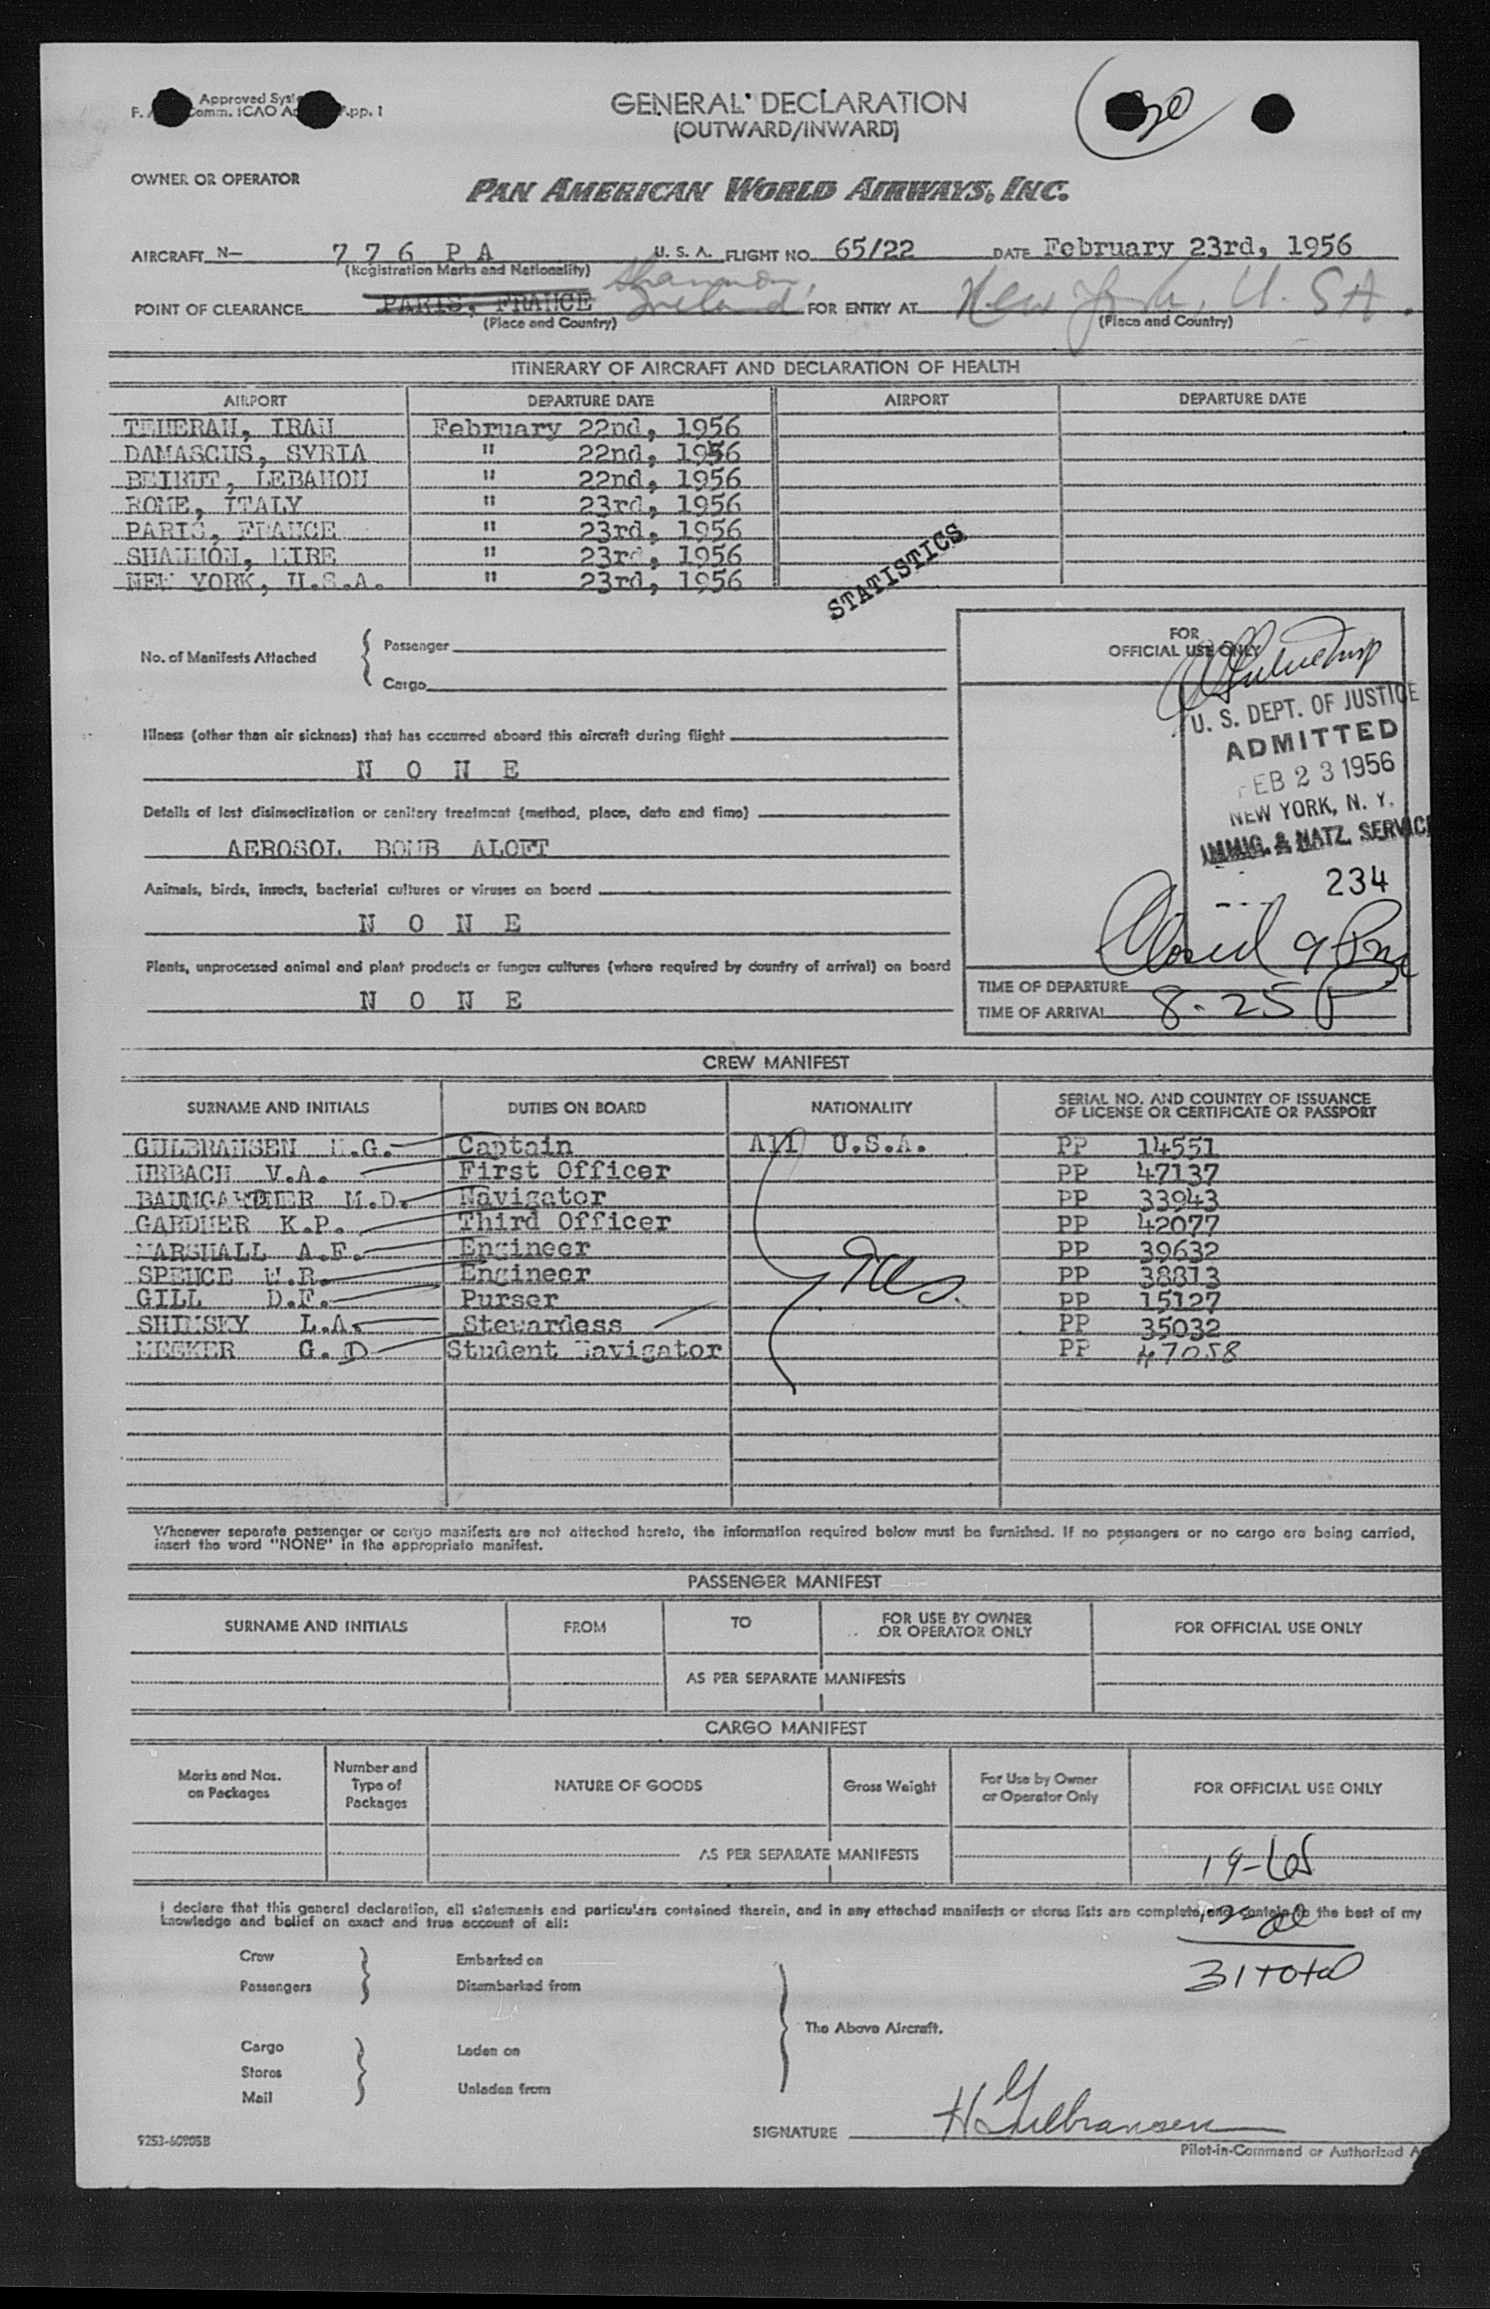 Approved Syst
F. Comm. ICAO A App. 1
GENERAL DECLARATION
(OUTWARD/INWARD)
OWNER OR OPERATOR
PAN AMERICAN WORLD AIRWAYS, INC.
AIRCRAFT N— 7 7 6 P A U. S. A. FLIGHT NO. 65/22 DATE February 23rd, 1956
(Registration Marks and Nationality)
Shannon,
POINT OF CLEARANCE PARIS, FRANCE Ireland FOR ENTRY AT New York, U. S A.
(Place and Country) (Place and Country)
ITINERARY OF AIRCRAFT AND DECLARATION OF HEALTH
AIRPORT DEPARTURE DATE AIRPORT DEPARTURE DATE
TEHERAN, IRAN February 22nd, 1956
DAMASCUS, SYRIA " 22nd, 1956
BEIRUT, LEBANON " 22nd, 1956
ROME, ITALY " 23rd, 1956
PARIS, FRANCE " 23rd, 1956
SHANNON, EIRE " 23rd, 1956
NEW YORK, U.S.A. " 23rd, 1956
STATISTICS
No. of Manifests Attached
Passenger
Cargo
FOR
OFFICIAL USE ONLY
U. S. DEPT. OF JUSTICE
ADMITTED
FEB 23 1956
NEW YORK, N. Y.
IMMIG. & NATZ. SERVICE
234
Closed 9 Pm
TIME OF DEPARTURE
TIME OF ARRIVAL 8-25 P
Illness (other than air sickness) that has occurred aboard this aircraft during flight
N O N E
Details of last disinsectization or sanitary treatment (method, place, date and time)
AEROSOL BOMB ALOFT
Animals, birds, insects, bacterial cultures or viruses on board
N O N E
Plants, unprocessed animal and plant products or fungus cultures (where required by country of arrival) on board
N O N E
CREW MANIFEST
SURNAME AND INITIALS DUTIES ON BOARD NATIONALITY SERIAL NO. AND COUNTRY OF ISSUANCE
OF LICENSE OR CERTIFICATE OR PASSPORT
GULBRANSEN H.G. Captain All U.S.A. PP 14551
URBACH V.A. First Officer PP 47137
BAUMGARDNER M.D. Navigator PP 33943
GARDNER K.P. Third Officer PP 42077
MARSHALL A.F. Engineer PP 39632
SPENCE W.R. Engineer PP 38813
GILL D.F. Purser PP 15127
SHIMSKY L.A. Stewardess PP 35032
MEEKER G. D Student Navigator PP 47058
Whenever separate passenger or cargo manifests are not attached hereto, the information required below must be furnished. If no passengers or no cargo are being carried,
insert the word "NONE" in the appropriate manifest.
PASSENGER MANIFEST
SURNAME AND INITIALS FROM TO FOR USE BY OWNER
OR OPERATOR ONLY FOR OFFICIAL USE ONLY
AS PER SEPARATE MANIFESTS
CARGO MANIFEST
Marks and Nos.
on Packages
Number and
Type of
Packages
NATURE OF GOODS Gross Weight
For Use by Owner
or Operator Only
FOR OFFICIAL USE ONLY
AS PER SEPARATE MANIFESTS
I declare that this general declaration, all statements and particulars contained therein, and in any attached manifests or stores lists are complete, and contain to the best of my
knowledge and belief an exact and true account of all:
31 total
Crew Embarked on
Passengers Disembarked from
The Above Aircraft.
Cargo Laden on
Stores
Mail Unladen from
SIGNATURE H Gulbransen
9253-60905B
Pilot-in-Command or Authorized A